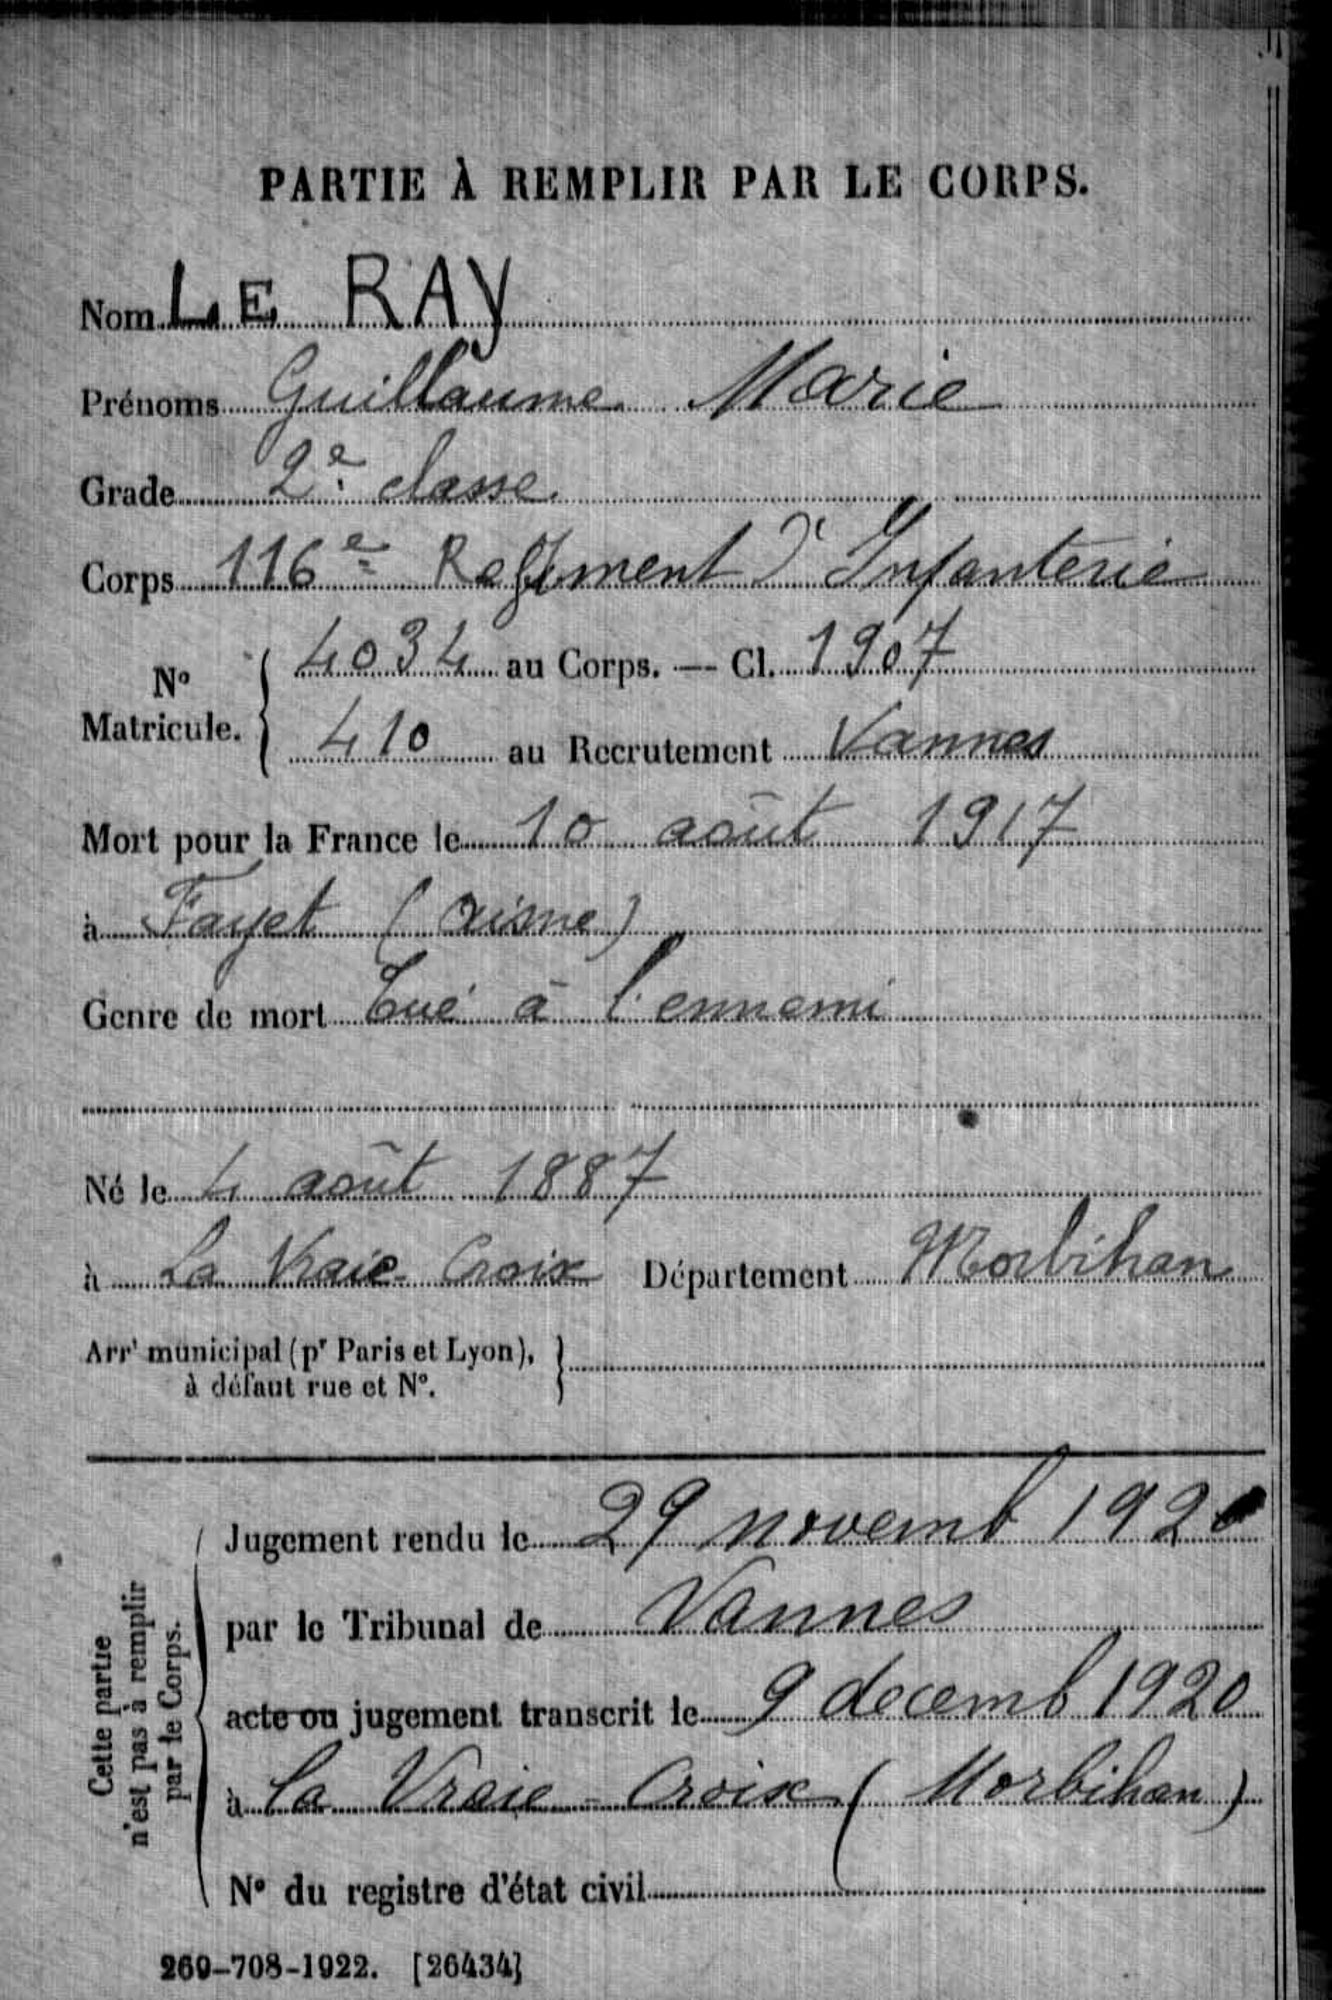 PARTIE À REMPLIR PAR LE CORPS.
Nom LE RAY
Prénoms Guillaume Marie
Grade 2e classe
Corps 116e Regiment d'Infanterie
No Matricule. 4034 au Corps. — Cl. 1907
410 au Recrutement Vannes
Mort pour la France le 10 août 1917
à Fayet (Aisne)
Genre de mort Tué à l'ennemi
Né le 4 août 1887
à La Vraie Croix Département Morbihan
Arrt municipal (pr Paris et Lyon),
à défaut rue et No.
Cette partie
n'est pas à remplir
par le Corps.
Jugement rendu le 29 novemb 1920
par le Tribunal de Vannes
acte ou jugement transcrit le 9 decemb 1920
à La Vraie-Croix (Morbihan)
No du registre d'état civil
269-708-1922. [26434]